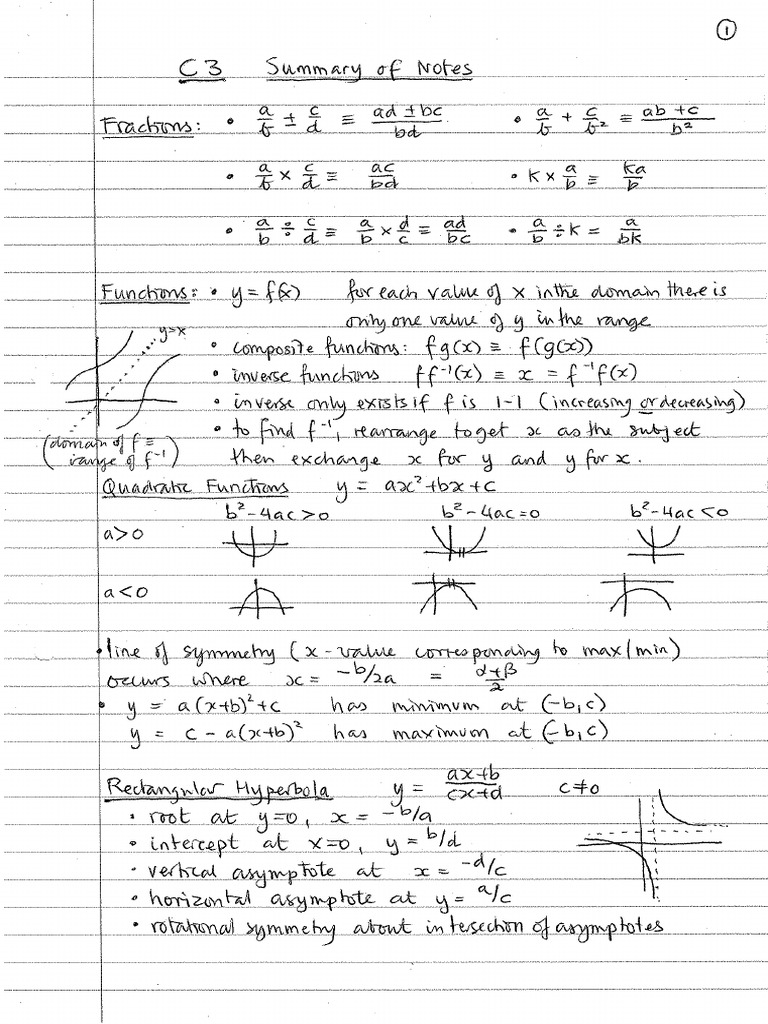 ①
C3 Summary of Notes
Fractions: • a/b ± c/d ≡ (ad ± bc)/bd • a/b + c/b² ≡ (ab + c)/b²
• a/b × c/d ≡ ac/bd • k × a/b ≡ ka/b
• a/b ÷ c/d ≡ a/b × d/c ≡ ad/bc • a/b ÷ k = a/bk
Functions: • y = f(x) for each value of x in the domain there is
only one value of y in the range
y=x
• composite functions: fg(x) ≡ f(g(x))
• inverse functions ff⁻¹(x) ≡ x = f⁻¹f(x)
• inverse only exists if f is 1-1 (increasing or decreasing)
• to find f⁻¹, rearrange to get x as the subject
then exchange x for y and y for x.
(domain of f ≡
range of f⁻¹)
Quadratic Functions y = ax²+bx+c
b²-4ac>0 b²-4ac=0 b²-4ac<0
a>0
a<0
• line of symmetry (x-value corresponding to max/min)
occurs where x = -b/2a = (α+β)/2
• y = a(x+b)²+c has minimum at (-b,c)
y = c - a(x+b)² has maximum at (-b,c)
Rectangular Hyperbola y = (ax+b)/(cx+d) c≠0
• root at y=0, x = -b/a
• intercept at x=0, y = b/d
• vertical asymptote at x = -d/c
• horizontal asymptote at y = a/c
• rotational symmetry about intersection of asymptotes